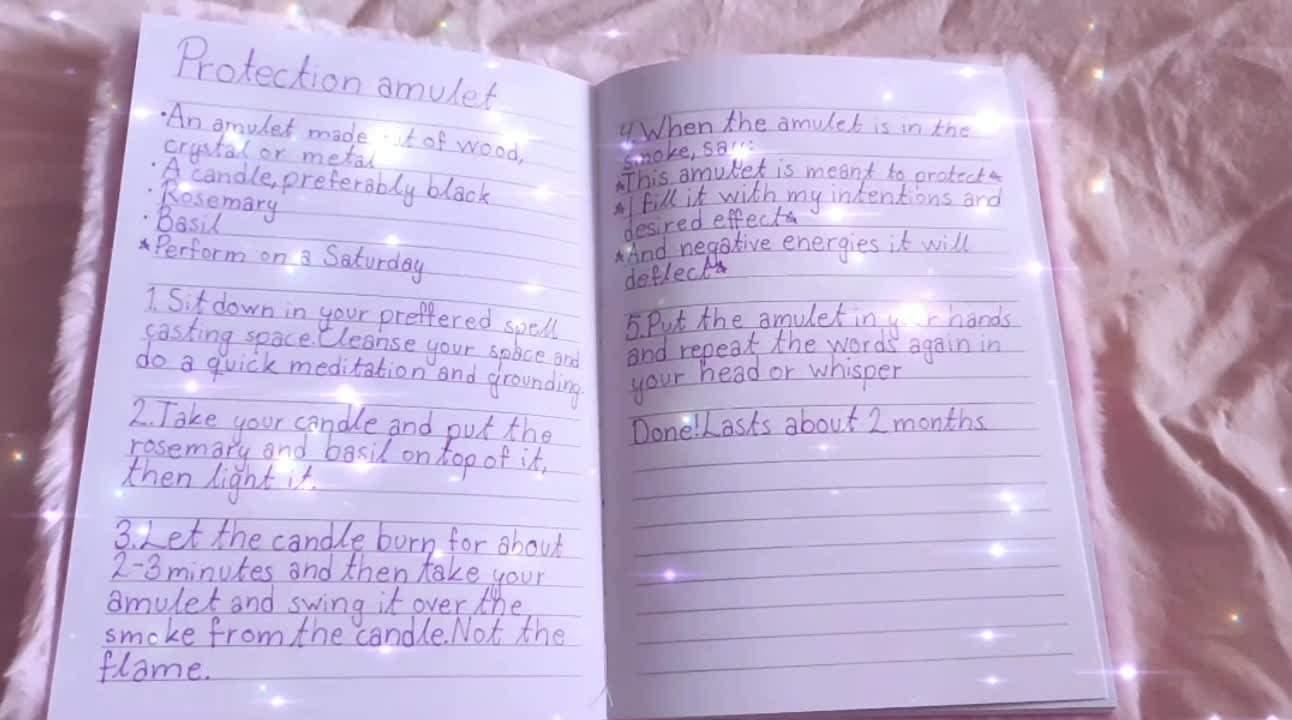 Protection amulet
•An amulet made it of wood,
crystal or metal
•A candle, preferably black
•Rosemary
•Basil
★Perform on a Saturday
1.Sit down in your preffered spell
casting space.Cleanse your space and
do a quick meditation and grounding.
2.Take your candle and put the
rosemary and basil on top of it,
then light it.
3.Let the candle burn for about
2-3 minutes and then take your
amulet and swing it over the
smoke from the candle.Not the
flame.
4.When the amulet is in the
smoke, say:
★This amulet is meant to protect★
★I fill it with my intentions and
desired effect★
★And negative energies it will
deflect★
5.Put the amulet in your hands
and repeat the words again in
your head or whisper
Done!Lasts about 2 months.